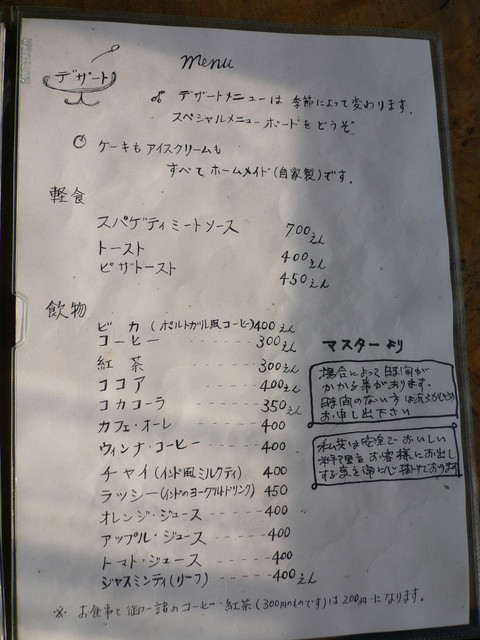 menu
デザート
デザートメニューは 季節によって変わります。
スペシャルメニューボードをどうぞ。
ケーキも アイスクリームも
すべて ホームメイド(自家製)です。
軽食
スパゲティミートソース 700えん
トースト 400えん
ピザトースト 450えん
飲物
ビカ (ポルトガル風コーヒー) 400えん
コーヒー 300えん
紅茶 300えん
ココア 400えん
コカコーラ 350えん
カフェ・オーレ 400
ウィンナ・コーヒー 400
チャイ (インド風ミルクティ) 400
ラッシー (インドのヨーグルトドリンク) 450
オレンジ・ジュース 400
アップル・ジュース 400
トマト・ジュース 400
ジャスミンティ(リーフ) 400えん
※ お食事と御一諸のコーヒー・紅茶(300円のものです)は200円になります。
マスターより
場合によって時間が
かかる事があります。
時間のない方は
お申し出下さい
私共は安全でおいしい
料理をお客様にお出し
する事を常に心掛けております